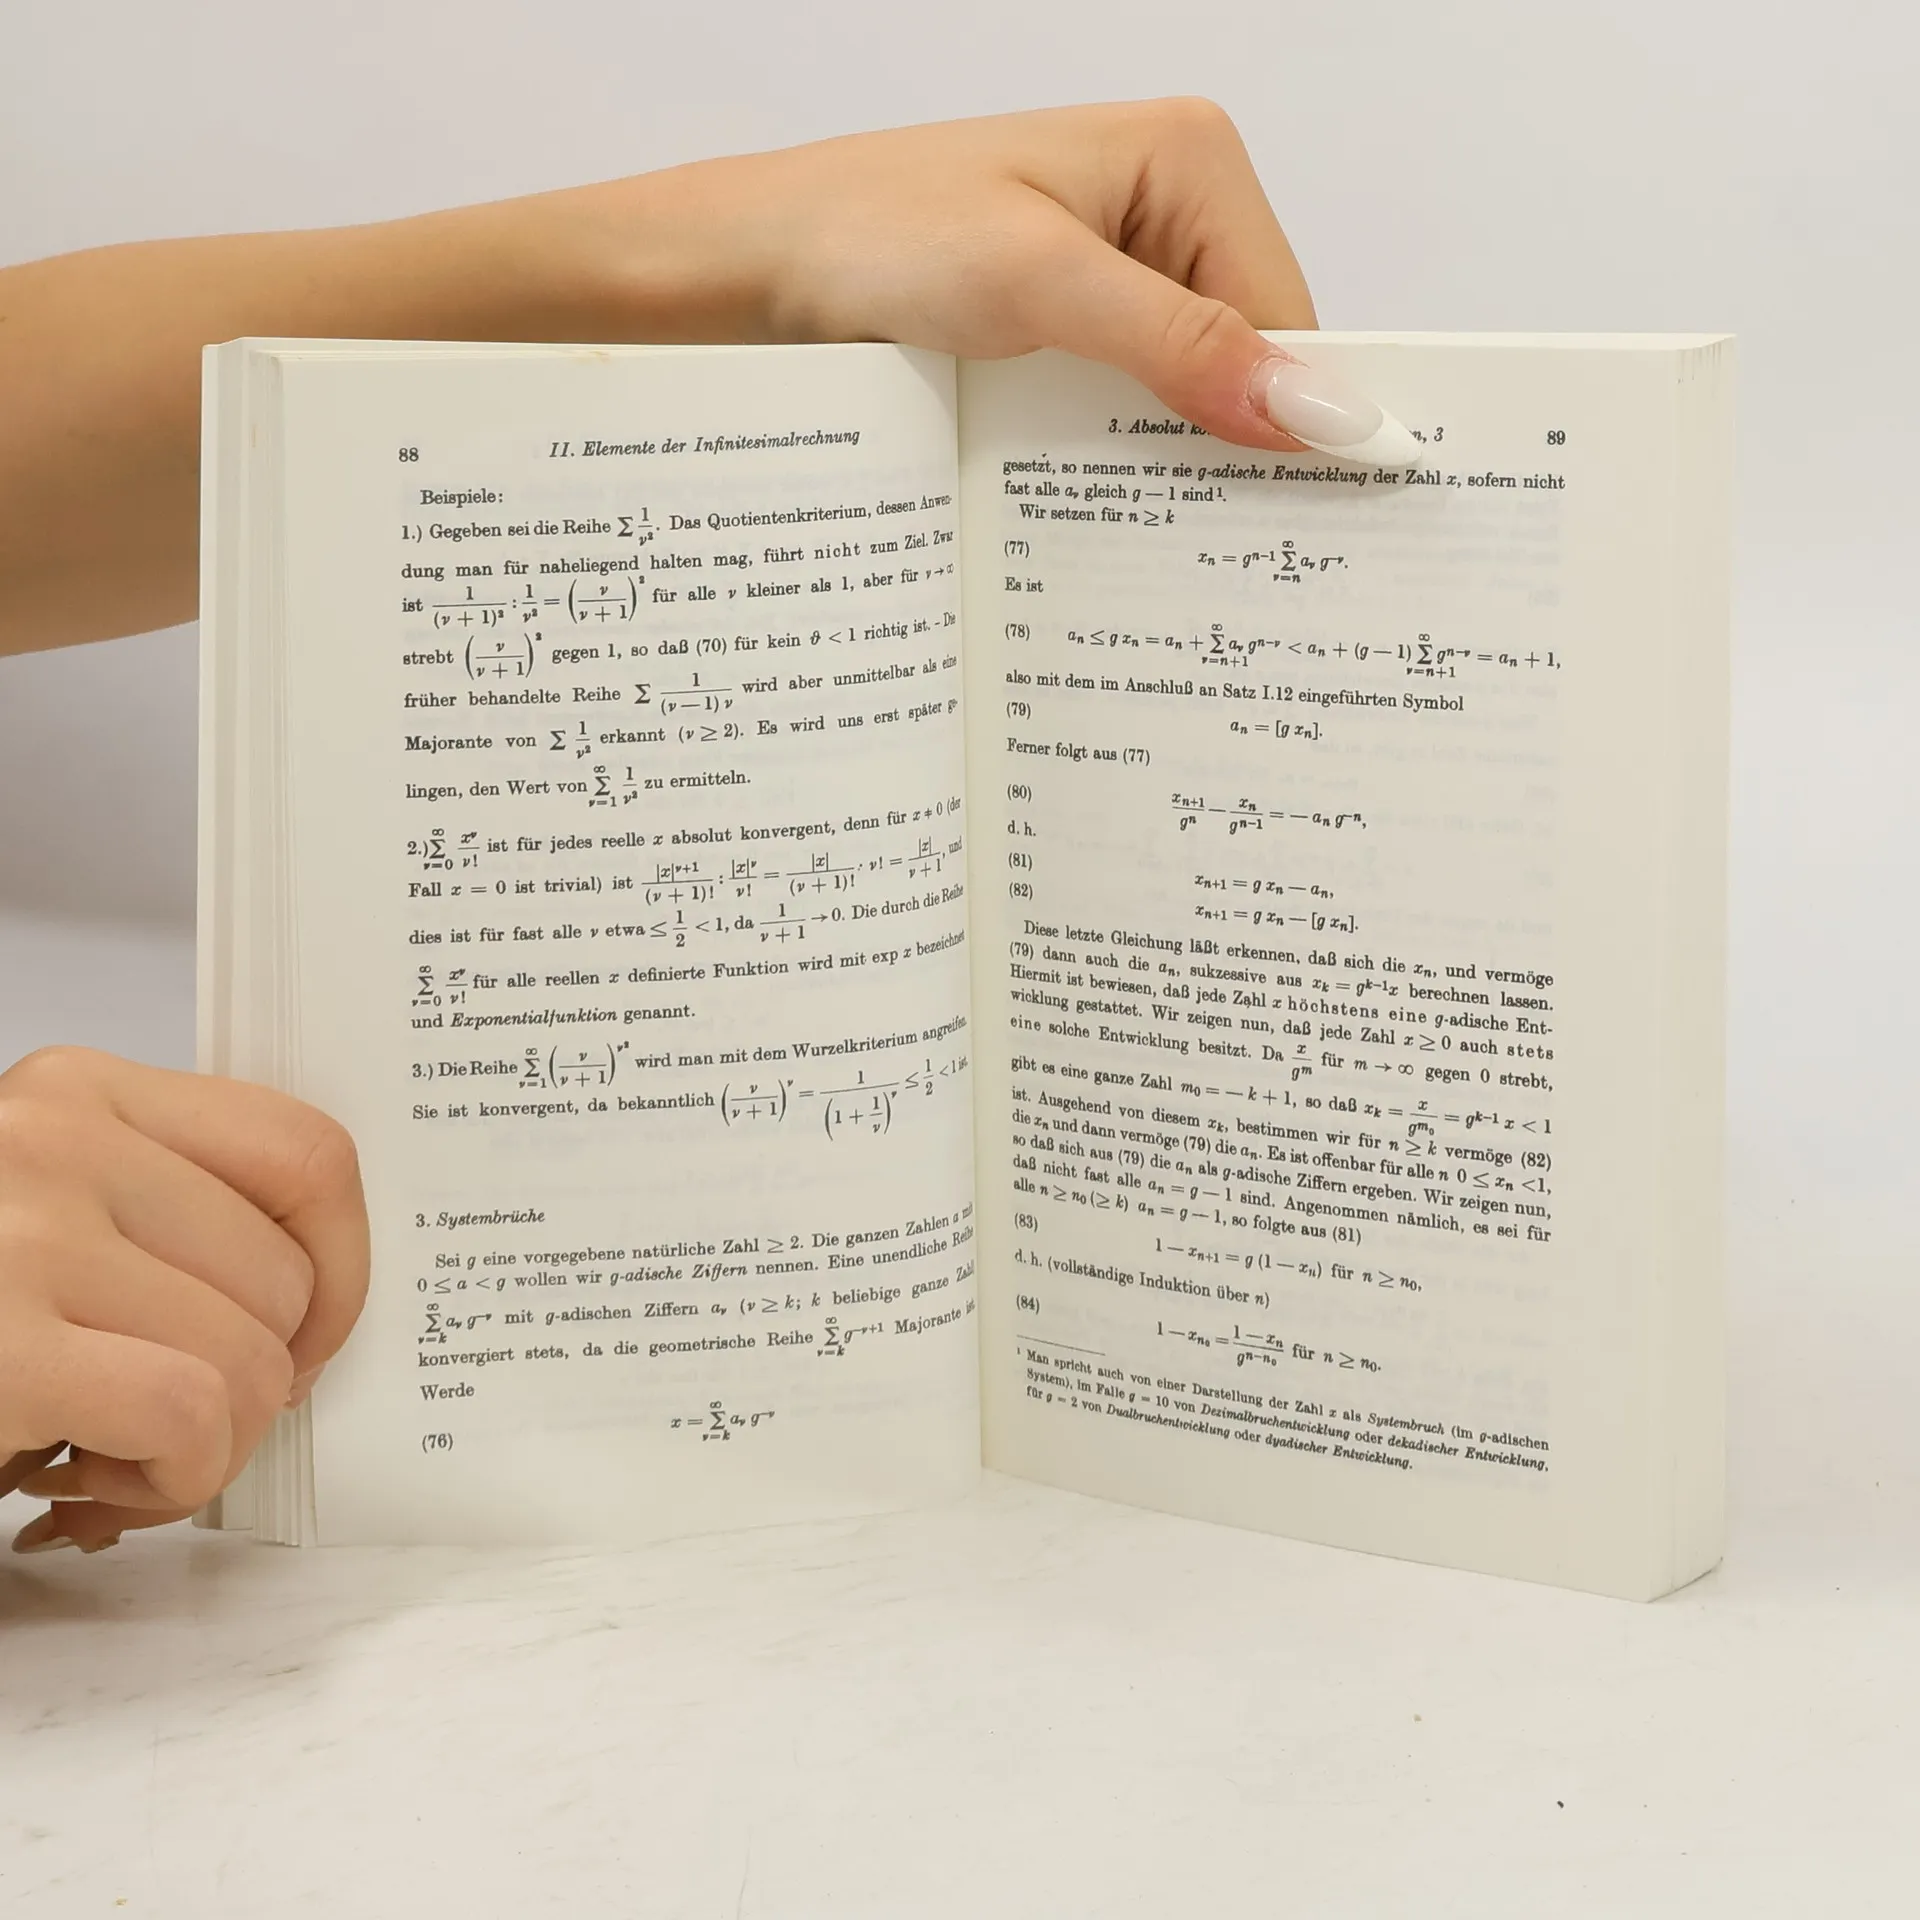 88 II. Elemente der Infinitesimalrechnung
Beispiele:
1.) Gegeben sei die Reihe ∑ 1/ν². Das Quotientenkriterium, dessen Anwen-
dung man für naheliegend halten mag, führt nicht zum Ziel. Zwar
ist 1/(ν + 1)² : 1/ν² = (ν/(ν + 1))² für alle ν kleiner als 1, aber für ν → ∞
strebt (ν/(ν + 1))² gegen 1, so daß (70) für kein ϑ < 1 richtig ist. - Die
früher behandelte Reihe ∑ 1/((ν — 1) ν) wird aber unmittelbar als eine
Majorante von ∑ 1/ν² erkannt (ν ≥ 2). Es wird uns erst später ge-
lingen, den Wert von ∑_{ν=1}^{∞} 1/ν² zu ermitteln.
2.) ∑_{ν=0}^{∞} x^ν/ν! ist für jedes reelle x absolut konvergent, denn für x ≠ 0 (der
Fall x = 0 ist trivial) ist |x|^{ν+1}/(ν + 1)! : |x|^ν/ν! = |x|/(ν + 1)! · ν! = |x|/(ν + 1), und
dies ist für fast alle ν etwa ≤ 1/2 < 1, da 1/(ν + 1) → 0. Die durch die Reihe
∑_{ν=0}^{∞} x^ν/ν! für alle reellen x definierte Funktion wird mit exp x bezeichnet
und Exponentialfunktion genannt.
3.) Die Reihe ∑_{ν=1}^{∞} (ν/(ν + 1))^{ν²} wird man mit dem Wurzelkriterium angreifen.
Sie ist konvergent, da bekanntlich (ν/(ν + 1))^ν = 1/(1 + 1/ν)^ν ≤ 1/2 < 1 ist.
3. Systembrüche
Sei g eine vorgegebene natürliche Zahl ≥ 2. Die ganzen Zahlen a mit
0 ≤ a < g wollen wir g-adische Ziffern nennen. Eine unendliche Reihe
∑_{ν=k}^{∞} a_ν g^{−ν} mit g-adischen Ziffern a_ν (ν ≥ k; k beliebige ganze Zahl
konvergiert stets, da die geometrische Reihe ∑_{ν=k}^{∞} g^{−ν+1} Majorante ist
Werde
(76) x = ∑_{ν=k}^{∞} a_ν g^{−ν}
3. Absolut n, 3 89
gesetzt, so nennen wir sie g-adische Entwicklung der Zahl x, sofern nicht
fast alle a_ν gleich g — 1 sind¹.
Wir setzen für n ≥ k
(77) x_n = g^{n−1} ∑_{ν=n}^{∞} a_ν g^{−ν}.
Es ist
(78) a_n ≤ g x_n = a_n + ∑_{ν=n+1}^{∞} a_ν g^{n−ν} < a_n + (g — 1) ∑_{ν=n+1}^{∞} g^{n−ν} = a_n + 1,
also mit dem im Anschluß an Satz I.12 eingeführten Symbol
(79) a_n = [g x_n].
Ferner folgt aus (77)
(80) x_{n+1}/g^n — x_n/g^{n−1} = — a_n g^{−n},
d. h.
(81) x_{n+1} = g x_n — a_n,
(82) x_{n+1} = g x_n — [g x_n].
Diese letzte Gleichung läßt erkennen, daß sich die x_n, und vermöge
(79) dann auch die a_n, sukzessive aus x_k = g^{k−1}x berechnen lassen.
Hiermit ist bewiesen, daß jede Zahl x höchstens eine g-adische Ent-
wicklung gestattet. Wir zeigen nun, daß jede Zahl x ≥ 0 auch stets
eine solche Entwicklung besitzt. Da x/g^m für m → ∞ gegen 0 strebt,
gibt es eine ganze Zahl m₀ = — k + 1, so daß x_k = x/g^{m₀} = g^{k−1} x < 1
ist. Ausgehend von diesem x_k, bestimmen wir für n ≥ k vermöge (82)
die x_n und dann vermöge (79) die a_n. Es ist offenbar für alle n 0 ≤ x_n < 1,
so daß sich aus (79) die a_n als g-adische Ziffern ergeben. Wir zeigen nun,
daß nicht fast alle a_n = g — 1 sind. Angenommen nämlich, es sei für
alle n ≥ n₀ (≥ k) a_n = g — 1, so folgte aus (81)
(83) 1 — x_{n+1} = g (1 — x_n) für n ≥ n₀,
d. h. (vollständige Induktion über n)
(84) 1 — x_{n₀} = (1 — x_n)/g^{n−n₀} für n ≥ n₀.
¹ Man spricht auch von einer Darstellung der Zahl x als Systembruch (im g-adischen
System), im Falle g = 10 von Dezimalbruchentwicklung oder dekadischer Entwicklung,
für g = 2 von Dualbruchentwicklung oder dyadischer Entwicklung.